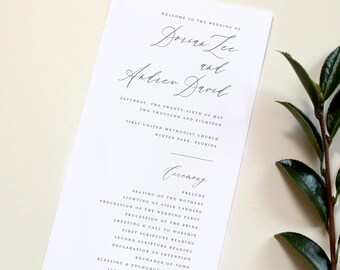 WELCOME TO THE WEDDING OF
Dorian Lee
and
Andrew David
SATURDAY, THE TWENTY-SIXTH OF MAY
TWO THOUSAND AND EIGHTEEN
FIRST UNITED METHODIST CHURCH
WINTER PARK, FLORIDA
Ceremony
PRELUDE
SEATING OF THE MOTHERS
LIGHTING OF AISLE CANDLES
PROCESSION OF THE WEDDING PARTY
PROCESSION OF THE BRIDE
GREETING & CALL TO WORSHIP
FIRST SCRIPTURE READING
SECOND SCRIPTURE READING
DECLARATION OF INTENTION
EXCHANGE OF VOWS
BLESSING & EXCHANGE OF